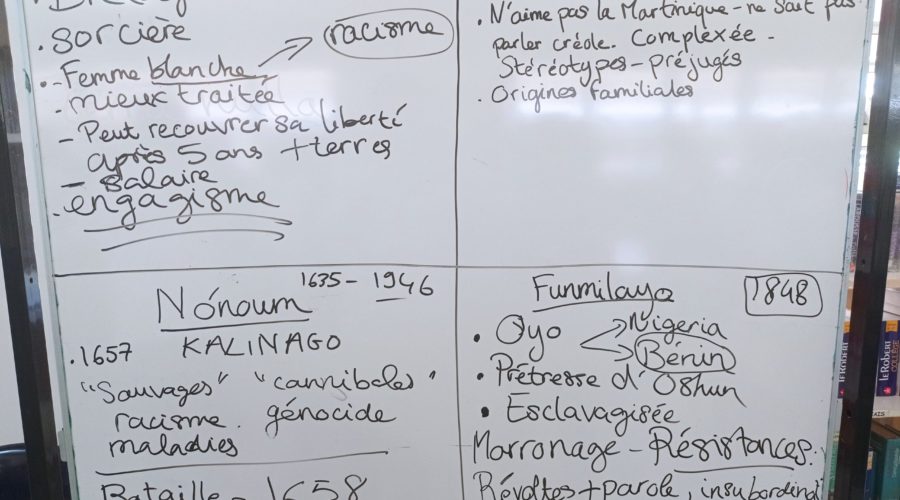 sorcière
racisme
- Femme blanche
- mieux traitée
- Peut recouvrer sa liberté
après 5 ans + terres
- salaire
. engagisme
. N'aime pas la Martinique - ne sait pas
parler créole. Complexée -
Stéréotypes - préjugés
. Origines familiales
Nónoum 1635 - 1946
. 1657 KALINAGO
"Sauvages" "cannibales"
racisme. génocide
maladies
Bataille - 1658
Funmilayo 1848
• Oyo Nigeria
Bénin
• Prêtresse d'Oshun
• Esclavagisée
Marronage - Résistances.
Révoltes + parole, insubordinat
le ROBERT
COLLÈGE